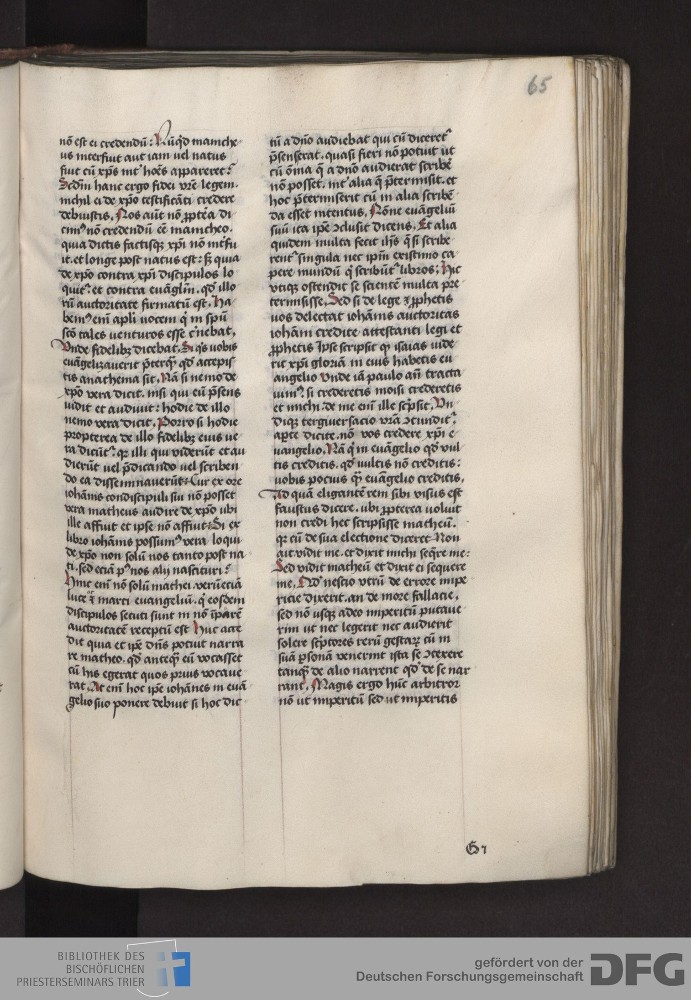 65
nō est ei credendū: Nūqͥd maniche-
us interfuit aut iam uel natus
fuit cū xp̄s int̉ hoīes appareret?
Scd̄m hanc ergo fidei vr̄e legem.
nichil ei de xp̄o testificāti credere
debuistis. Nos aūt nō ꝓpt̉ea di
cimꝰ nō credendū eē manicheo.
quia dictis factisqꝫ xp̄i nō int̉fu
it. et longe post natus est: sꝫ quia
de xp̄o contra xp̄i discipulos lo
quit᷑ et contra euāgl̄iū. qd̓ illo
rū auctoritate firmatū est. Ha
bemꝰ enī apl̄i uocem q̇ in sp̄u
scō tales venturos esse c̉nebat.
Vnde fidelibꝫ dicebat. Si qͥs uobis
euāgelizauerit p̄terqͣ qd̓ accepis
tis anathema sit. Nā si nemo de
xp̄o vera dicit. nisi qui eū p̄sens
uidit et audiuit: hodie de illo
nemo vera dicit. Porro si hodie
propterea de illo fidelibꝫ eius ue
ra dicūt᷑. qꝛ illi qui viderūt et au
dierūt uel p̄dicando uel scriben
do ea disseminauerūt: Cur ex ore
iohānis condiscipuli sui nō posset
vera matheus audire de xp̄o ubi
ille affuit et ipse nō affuit: Si ex
libro iohānis possumꝰ vera loqui
de xp̄o non solū nos tanto post na
ti. sed eciā pꝰ nos alij nascituri?
Hinc enī nō solū mathei verū eciā
luce et marci euangeliū. q̇ eosdem
discipulos secuti sunt in nō īparē
auctoritatē receptū est. Huc acce
dit quia et ip̄e dn̄s potuit narra
re matheo. qd̓ anteqͣ eū vocasset
cū his egerat quos prius vocaue
rat. At enī hoc ip̄e iohānes in euā
gelio suo ponere debuit si hoc dic
tū a dn̄o audiebat qui cū diceret᷑
p̄sens erat. quasi fieri nō potuit ut
cū oīa q̄ a dn̄o audierat scribē
nō posset. int̉ alia q̄ p̄termisit. et
hoc p̄termiserit cū in alia scribē
da esset intentus. Nōne euāgeliū
suū ita ip̄e ꝯclusit dicens. Et alia
quidem multa fecit ih̄s q̄ si scribe
rent᷑ singula nec ip̄m existimo ca
pere mundū q̄ scribūt᷑ libros: Hic
vtiqꝫ ostendit se scientē multa pre
termisisse. Sed si de lege ⁊ ꝓphetis
vos delectat iohānis auctoritas
iohāni credite attestanti legi et
ꝓphetis Ipse scripsit qͥ isaias uide
rit xp̄i gloriā in eius habetis eu
angelio vnde iā paulo an̄ tracta
uimꝰ. si crederetis moisi crederetis
et michi. de me enī ille scp̄sit. Vn
diqꝫ terguiersacio vr̄a ꝯtundit᷑.
ap̄te dicite. nō vos credere xp̄i e
uangelio. Nā qͥ in euāgelio qd̓ vul
tis creditis. qd̓ vultis nō creditis:
uobis pocius qͣ euāgelio creditis.
Ad quā elegantē rem sibi visus est
faustus dicere. ubi ꝓpterea uoluit
non credi hec scripsisse matheū.
qꝛ cū de sua electione diceret Non
ait vidit me. et dixit michi seq̄re me:
Sed vidit matheū et dixit ei sequere
me. Qd̓ nescio vtrū de errore impe
ricie dixerit. an de more fallacie.
sed nō usqꝫ adeo imperitū putaue
rim ut nec legerit nec audierit
solere scp̄tores rerū gestaꝝ cū in
suā ꝑsonā venerint ita se ꝯtexere
tanqͣ de alio narrent qd̓ de se nar
rant. Magis ergo hūc arbitror
nō ut imperitū sed ut imperitis
G 1
BIBLIOTHEK DES
BISCHÖFLICHEN
PRIESTERSEMINARS TRIER
gefördert von der
Deutschen Forschungsgemeinschaft
DFG